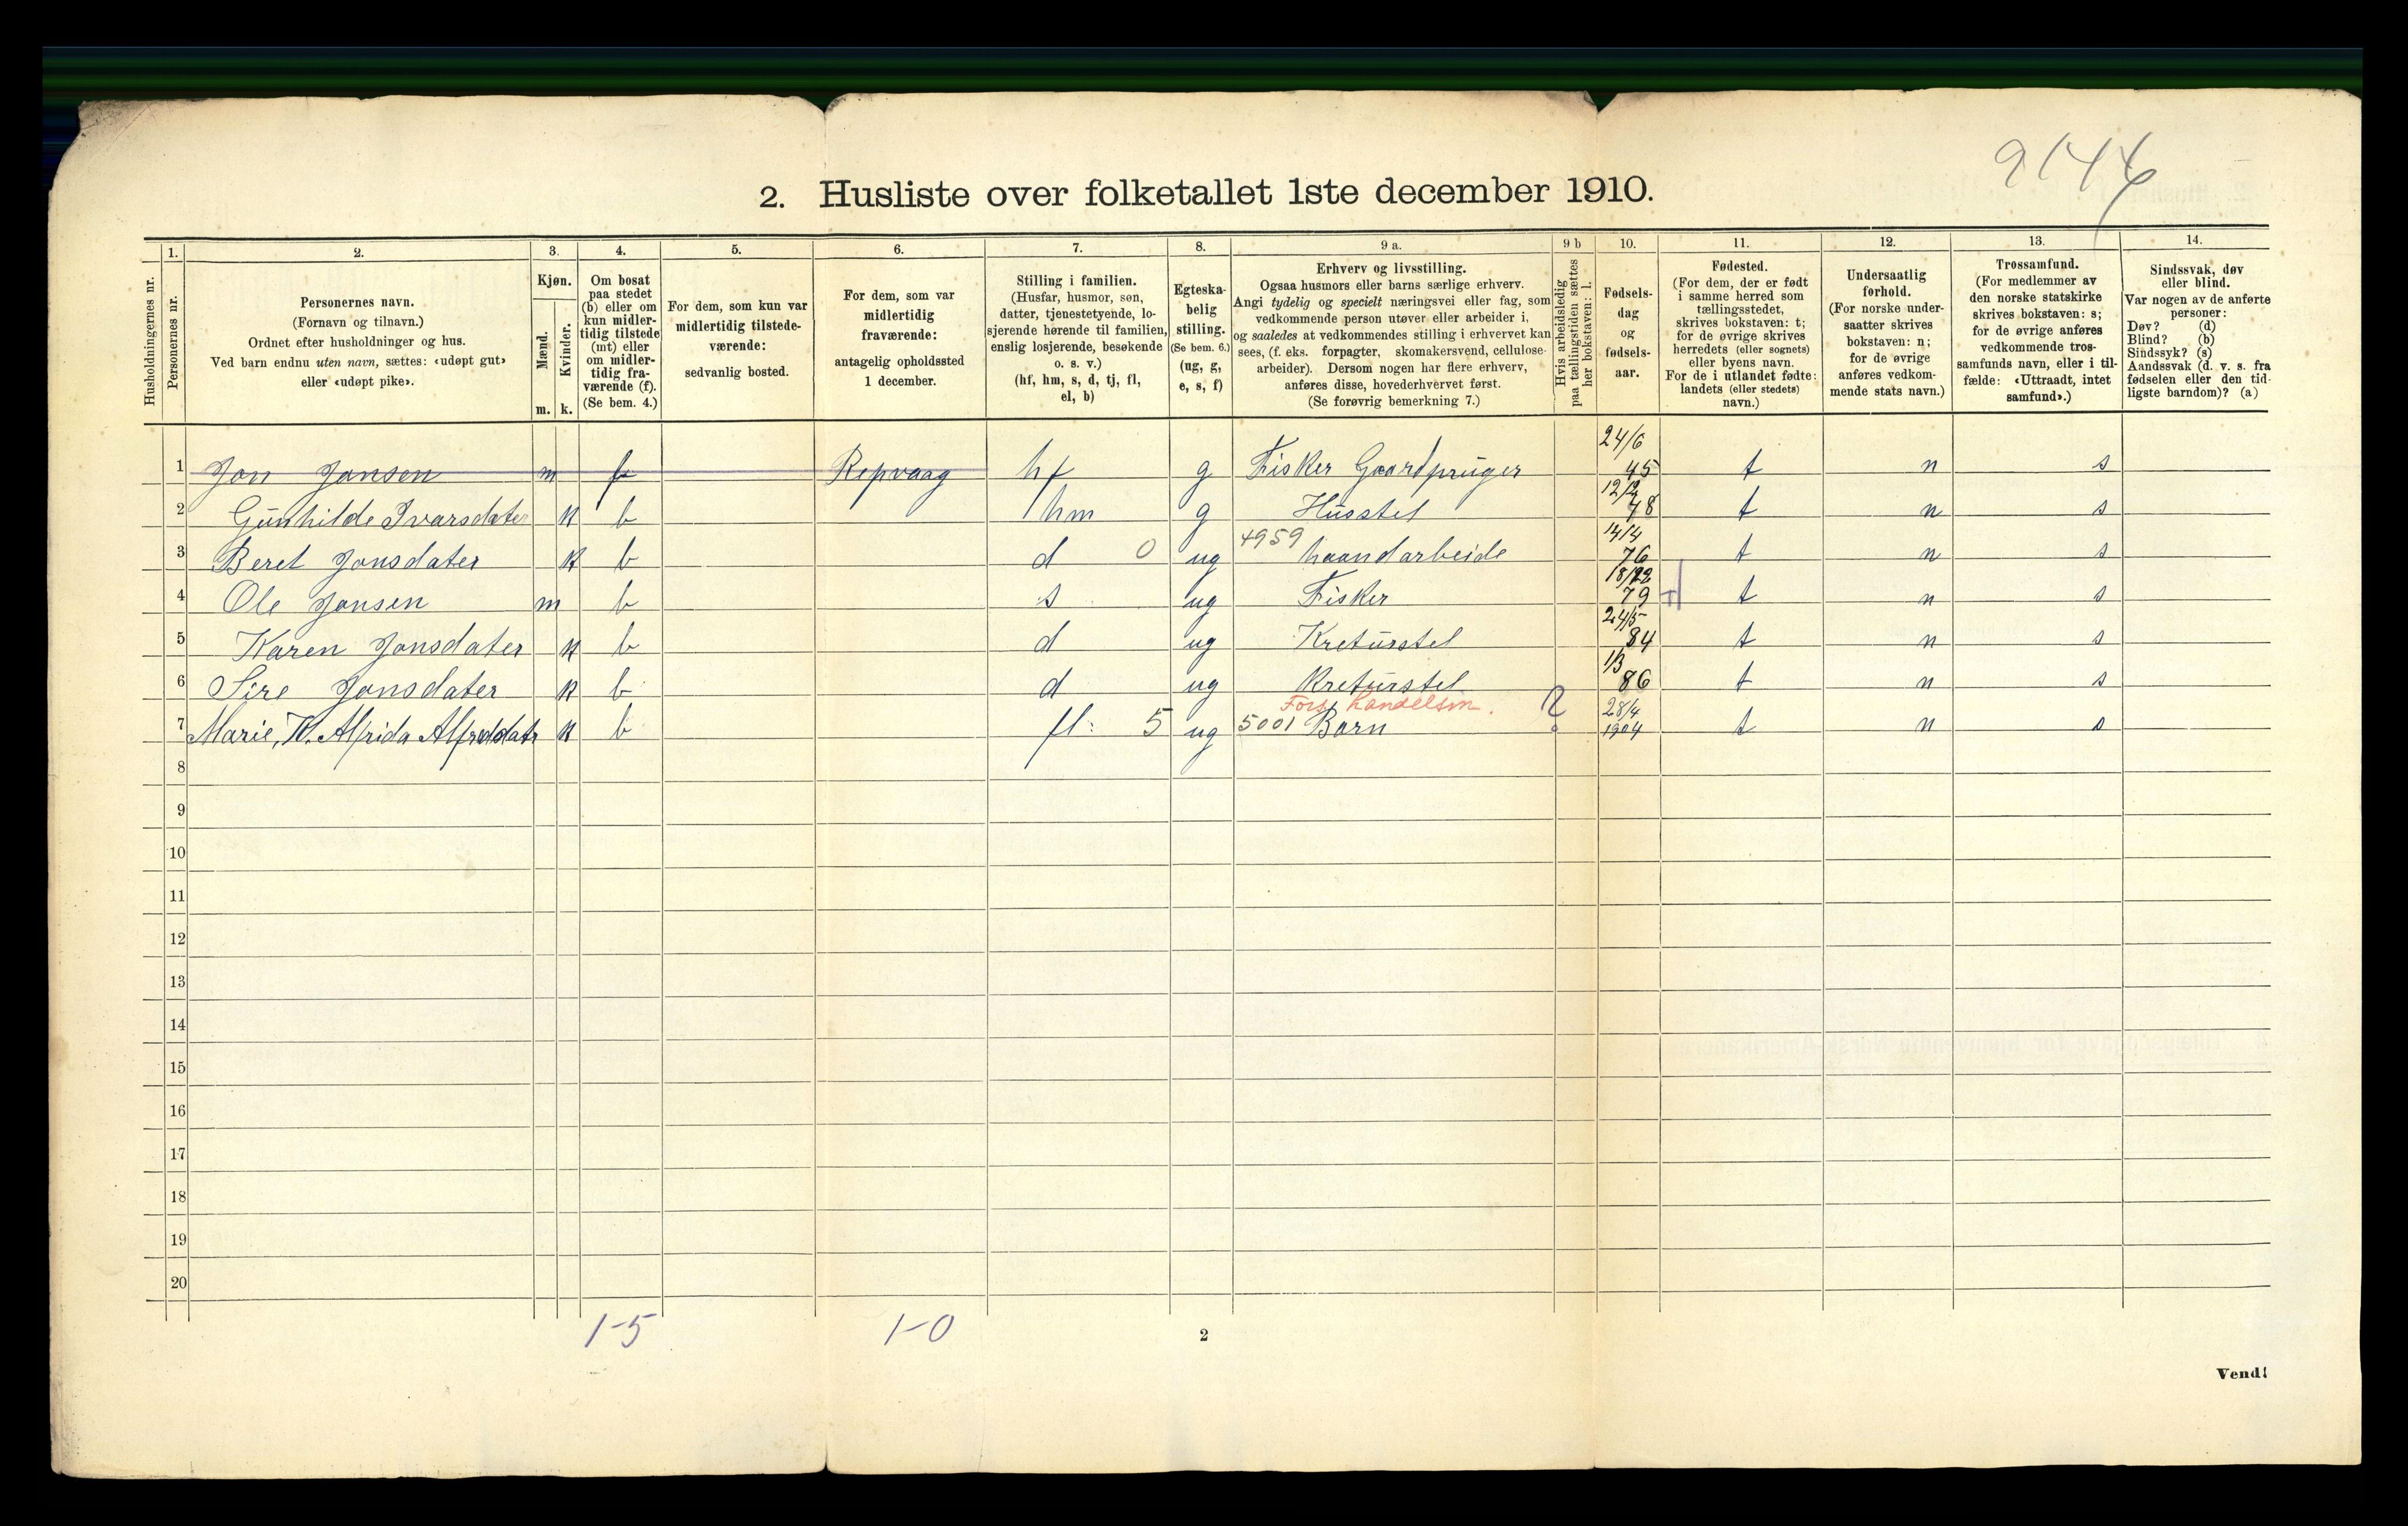 9144
2. Husliste over folketallet 1ste december 1910.
Husholdningernes nr.
1. Personernes nr.
2. Personernes navn.
(Fornavn og tilnavn.)
Ordnet efter husholdninger og hus.
Ved barn endnu uten navn, sættes: «udøpt gut»
eller «udøpt pike».
3. Kjøn.
Mænd. m.
Kvinder. k.
4. Om bosat
paa stedet
(b) eller om
kun midler-
tidig tilstede
(mt) eller
om midler-
tidig fra-
værende (f).
(Se bem. 4.)
5. For dem, som kun var
midlertidig tilstede-
værende:
sedvanlig bosted.
6. For dem, som var
midlertidig
fraværende:
antagelig opholdssted
1 december.
7. Stilling i familien.
(Husfar, husmor, søn,
datter, tjenestetyende, lo-
sjerende hørende til familien,
enslig losjerende, besøkende
o. s. v.)
(hf, hm, s, d, tj, fl,
el, b)
8. Egteska-
belig
stilling.
(Se bem. 6.)
(ug, g,
e, s, f)
9 a. Erhverv og livsstilling.
Ogsaa husmors eller barns særlige erhverv.
Angi tydelig og specielt næringsvei eller fag, som
vedkommende person utøver eller arbeider i,
og saaledes at vedkommendes stilling i erhvervet kan
sees, (f. eks. forpagter, skomakersvend, cellulose-
arbeider). Dersom nogen har flere erhverv,
anføres disse, hovederhvervet først.
(Se forøvrig bemerkning 7.)
9 b Hvis arbeidsledig
paa tællingstiden sættes
her bokstaven: l.
10. Fødsels-
dag
og
fødsels-
aar.
11. Fødested.
(For dem, der er født
i samme herred som
tællingsstedet,
skrives bokstaven: t;
for de øvrige skrives
herredets (eller sognets)
eller byens navn.
For de i utlandet fødte:
landets (eller stedets)
navn.)
12. Undersaatlig
forhold.
(For norske under-
saatter skrives
bokstaven: n;
for de øvrige
anføres vedkom-
mende stats navn.)
13. Trossamfund.
(For medlemmer av
den norske statskirke
skrives bokstaven: s;
for de øvrige anføres
vedkommende tros-
samfunds navn, eller i til-
fælde: «Uttraadt, intet
samfund».)
14. Sindssvak, døv
eller blind.
Var nogen av de anførte
personer:
Døv? (d)
Blind? (b)
Sindssyk? (s)
Aandssvak (d. v. s. fra
fødselen eller den tid-
ligste barndom)? (a)
1 Jon Jonsen m f Repvaag hf g Fisker Gaardpruger 24/6 45 t n s
2 Gunhilde Ivarsdater k b hm g Husstel 12/2 48 t n s
3 Beret Jonsdater k b d 0 ug 4959 haandarbeide 14/4 76 t n s
4 Ole Jonsen m b s ug Fisker 18/12 79 t n s
5 Karen Jonsdater k b d ug Kreturstel 24/5 84 t n s
6 Sire Jonsdater k b d ug Kreturstel 1/3 86 t n s
7 Marie, K. Alfrida Alfredsdatr k b fl: 5 ug 5001 Barn Fors. handelsm. ? 28/4 1904 t n s
8
9
10
11
12
13
14
15
16
17
18
19
20
1-5 1-0
2
Vend!